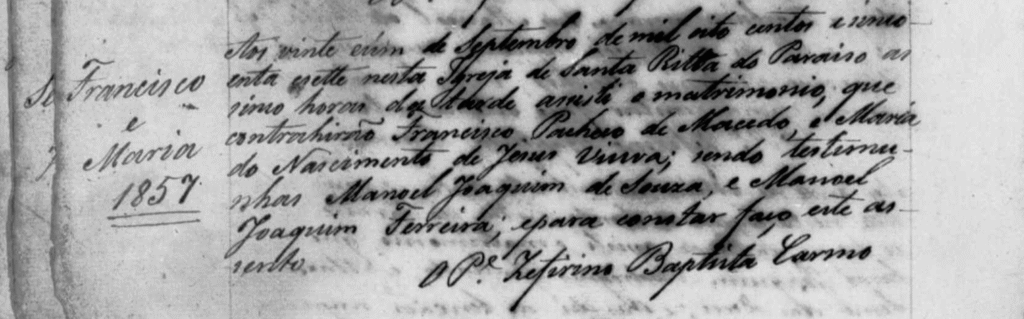 Francisco
e
Maria
1857
Aos vinte eúm de Septembro de mil oito centos e sinco
enta esette nesta Igreja de Santa Ritta do Paraiso as
sinco horas da tarde assisti o matrimonio, que
contrahirão Francisco Pacheco de Macedo, e Maria
do Nascimento de Jesus Viuva; sendo testimu-
nhas Manoel Joaquim de Souza, e Manoel
Joaquim Ferreira; epara constar faço este as-
sento.
O Pe. Zefirino Baptista Carmo